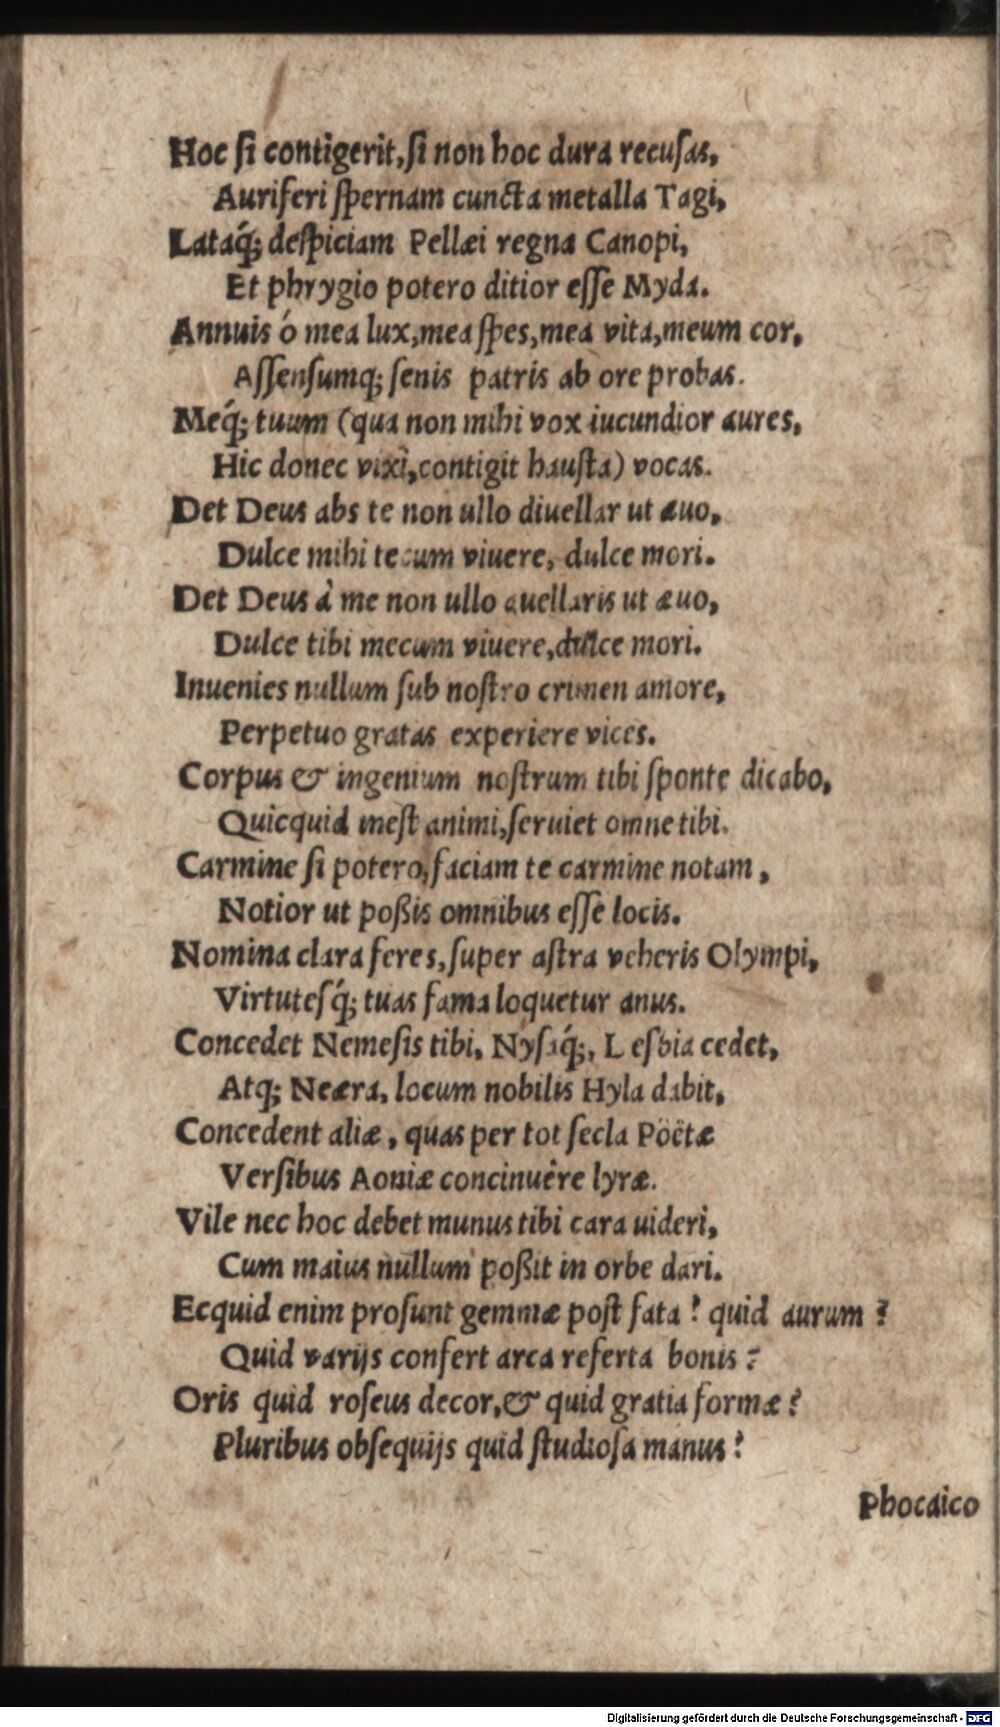 Hoc ſi contigerit, ſi non hoc dura recuſas,
Auriferi ſpernam cuncta metalla Tagi,
Lataq́; deſpiciam Pellæi regna Canopi,
Et phrygio potero ditior eſſe Myda.
Annuis ó mea lux, mea ſpes, mea vita, meum cor,
Aſſenſumq; ſenis patris ab ore probas.
Meq́; tuum (qua non mihi vox iucundior aures,
Hic donec vixi, contigit hauſta) vocas.
Det Deus abs te non ullo diuellar ut æuo,
Dulce mihi tecum viuere, dulce mori.
Det Deus à me non ullo auellaris ut æuo,
Dulce tibi mecum viuere, dulce mori.
Inuenies nullum ſub noſtro crimen amore,
Perpetuo gratas experiere vices.
Corpus & ingenium noſtrum tibi ſponte dicabo,
Quicquid ineſt animi, ſeruiet omne tibi.
Carmine ſi potero, faciam te carmine notam,
Notior ut poßis omnibus eſſe locis.
Nomina clara feres, ſuper aſtra veheris Olympi,
Virtuteſq́; tuas fama loquetur anus.
Concedet Nemeſis tibi, Nyſaq́;, Lesbia cedet,
Atq; Neæra, locum nobilis Hyla dabit,
Concedent aliæ, quas per tot ſecla Poëtæ
Verſibus Aoniæ concinuêre lyræ.
Vile nec hoc debet munus tibi cara uideri,
Cum maius nullum poßit in orbe dari.
Ecquid enim proſunt gemmæ poſt fata? quid aurum?
Quid varijs confert arca referta bonis?
Oris quid roſeus decor, & quid gratia formæ?
Pluribus obſequijs quid ſtudioſa manus?
Phocaico
Digitalisierung gefördert durch die Deutsche Forschungsgemeinschaft - DFG